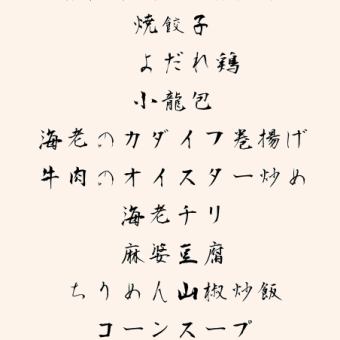 焼餃子
よだれ鶏
小龍包
海老のカダイフ巻揚げ
牛肉のオイスター炒め
海老チリ
麻婆豆腐
ちりめん山椒炒飯
コーンスープ